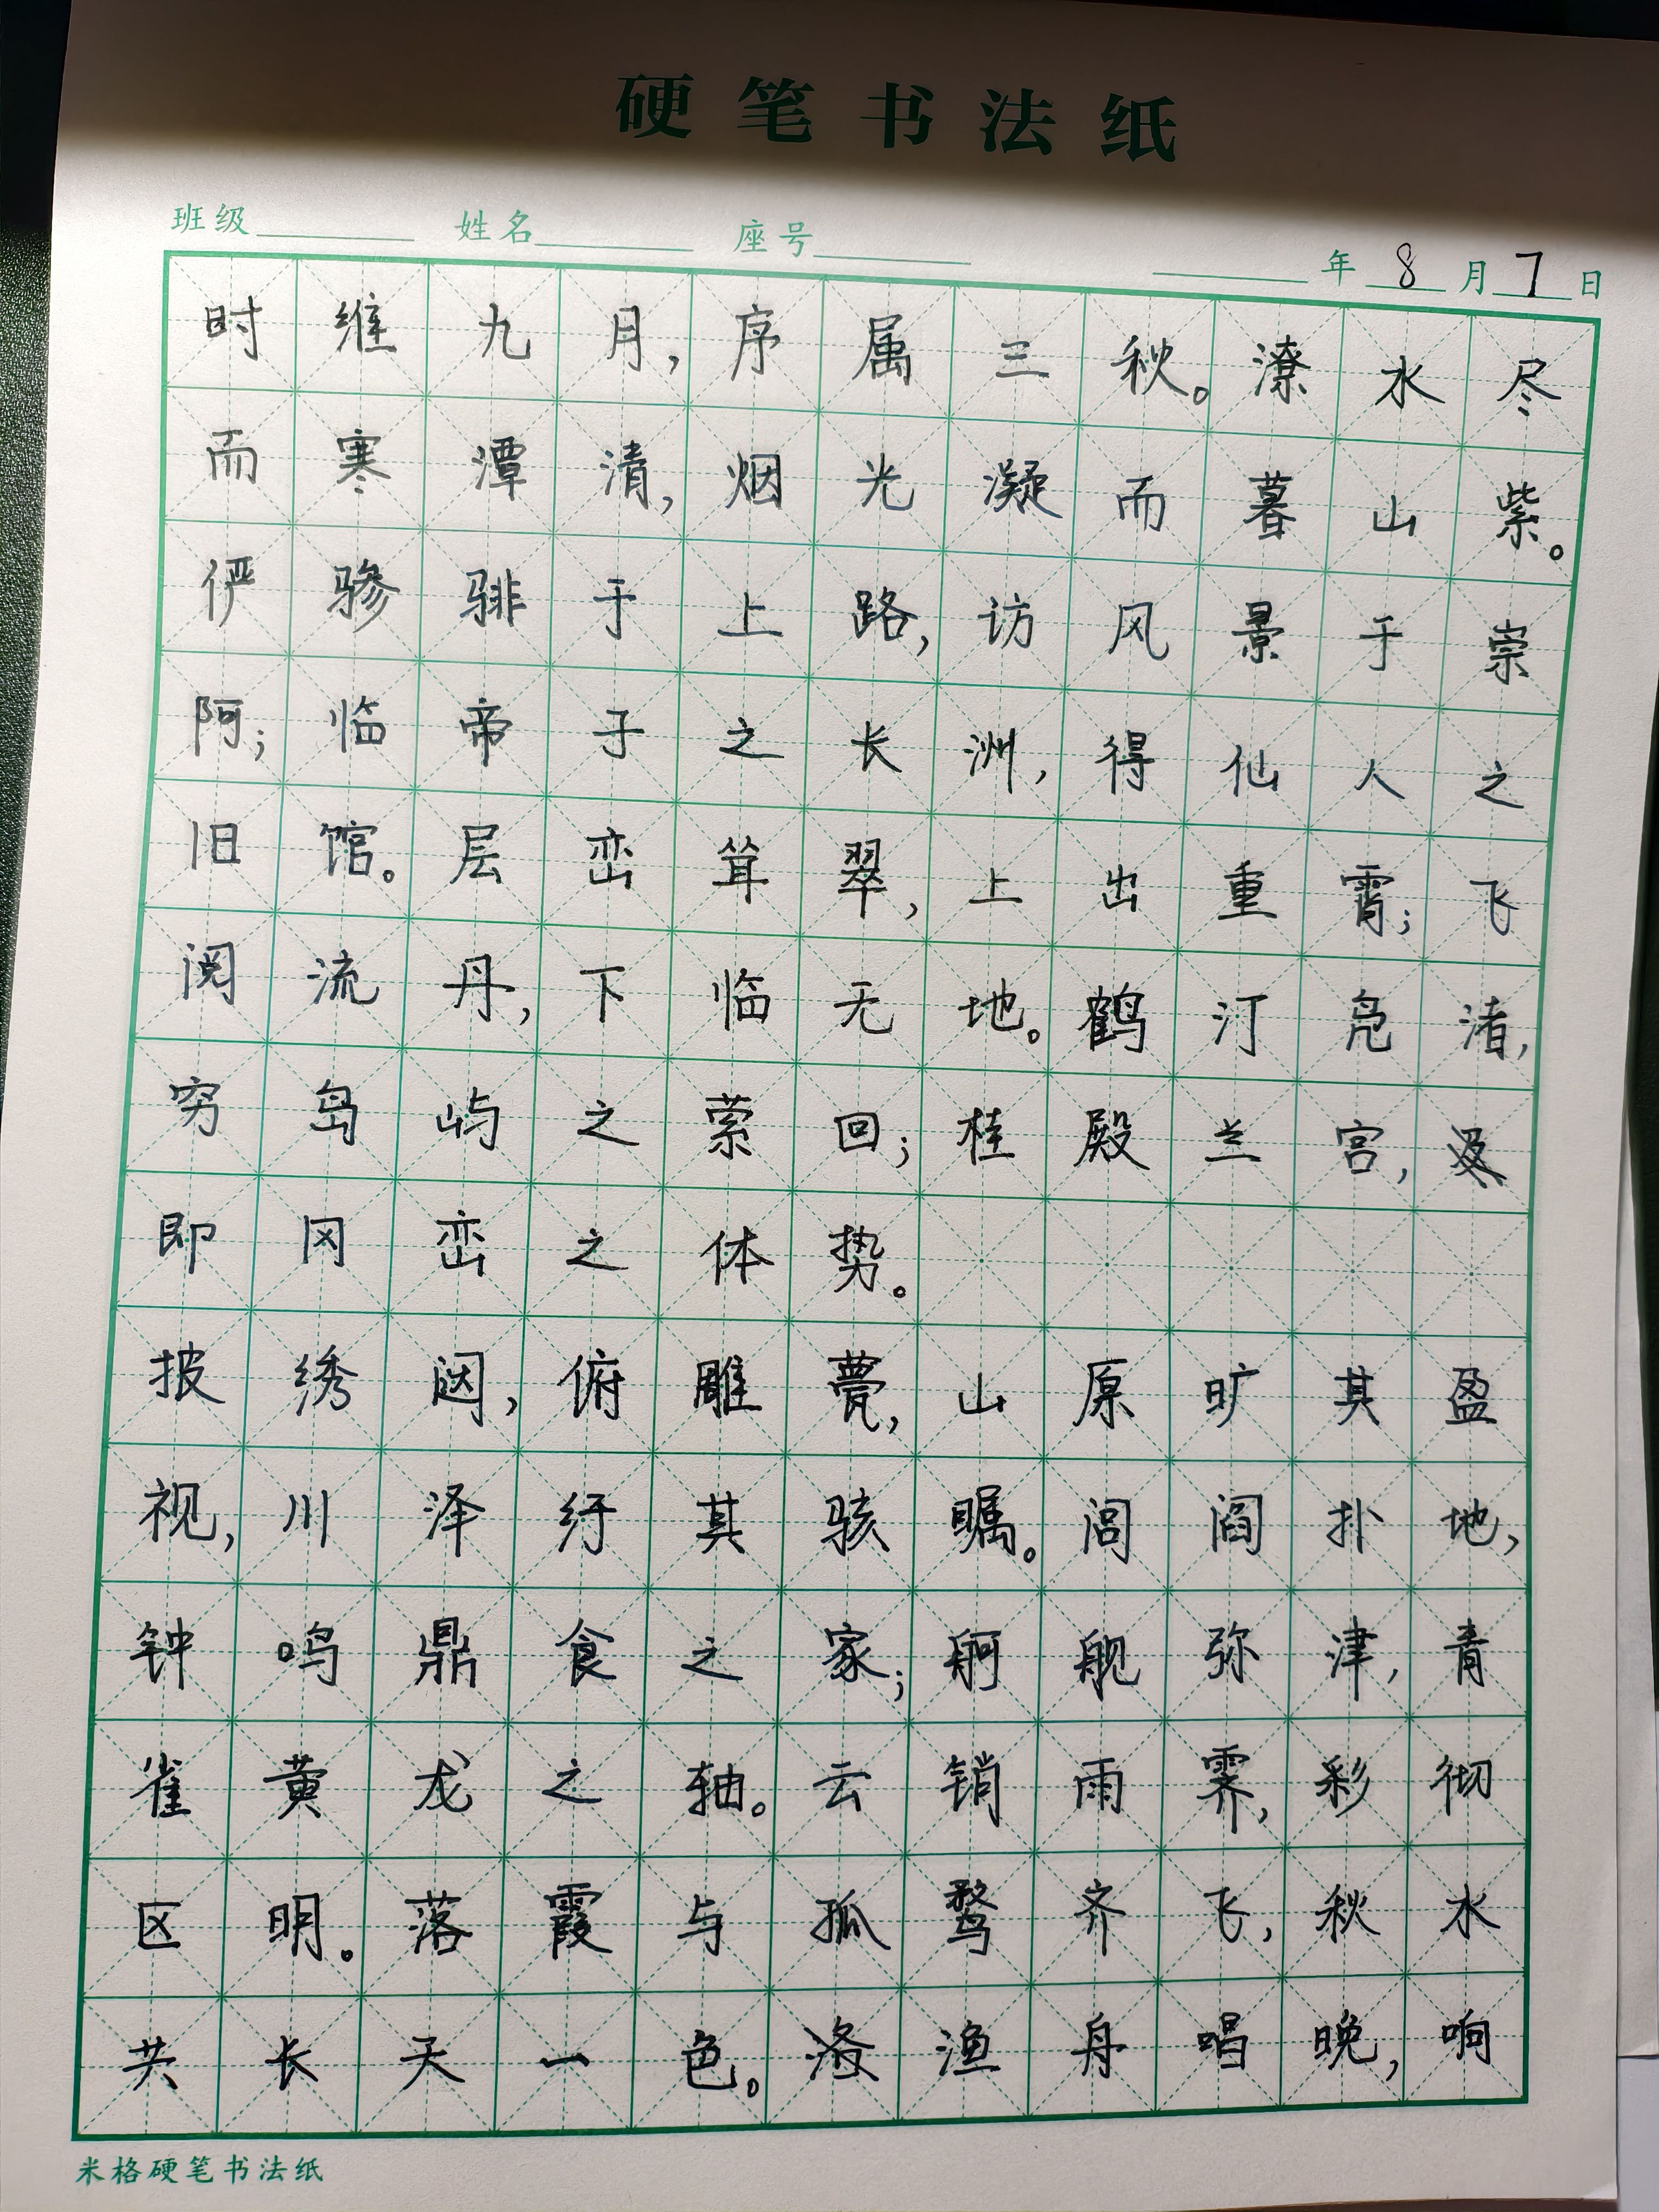 硬笔书法纸
班级 姓名 座号 年 8 月 7 日
时维九月，序属三秋。潦水尽
而寒潭清，烟光凝而暮山紫。
俨骖騑于上路，访风景于崇
阿；临帝子之长洲，得仙人之
旧馆。层峦耸翠，上出重霄；飞
阁流丹，下临无地。鹤汀凫渚，
穷岛屿之萦回；桂殿兰宫，
即冈峦之体势。
披绣闼，俯雕甍，山原旷其盈
视，川泽纡其骇瞩。闾阎扑地，
钟鸣鼎食之家；舸舰弥津，青
雀黄龙之轴。云销雨霁，彩彻
区明。落霞与孤鹜齐飞，秋水
共长天一色。渔舟唱晚，响
米格硬笔书法纸